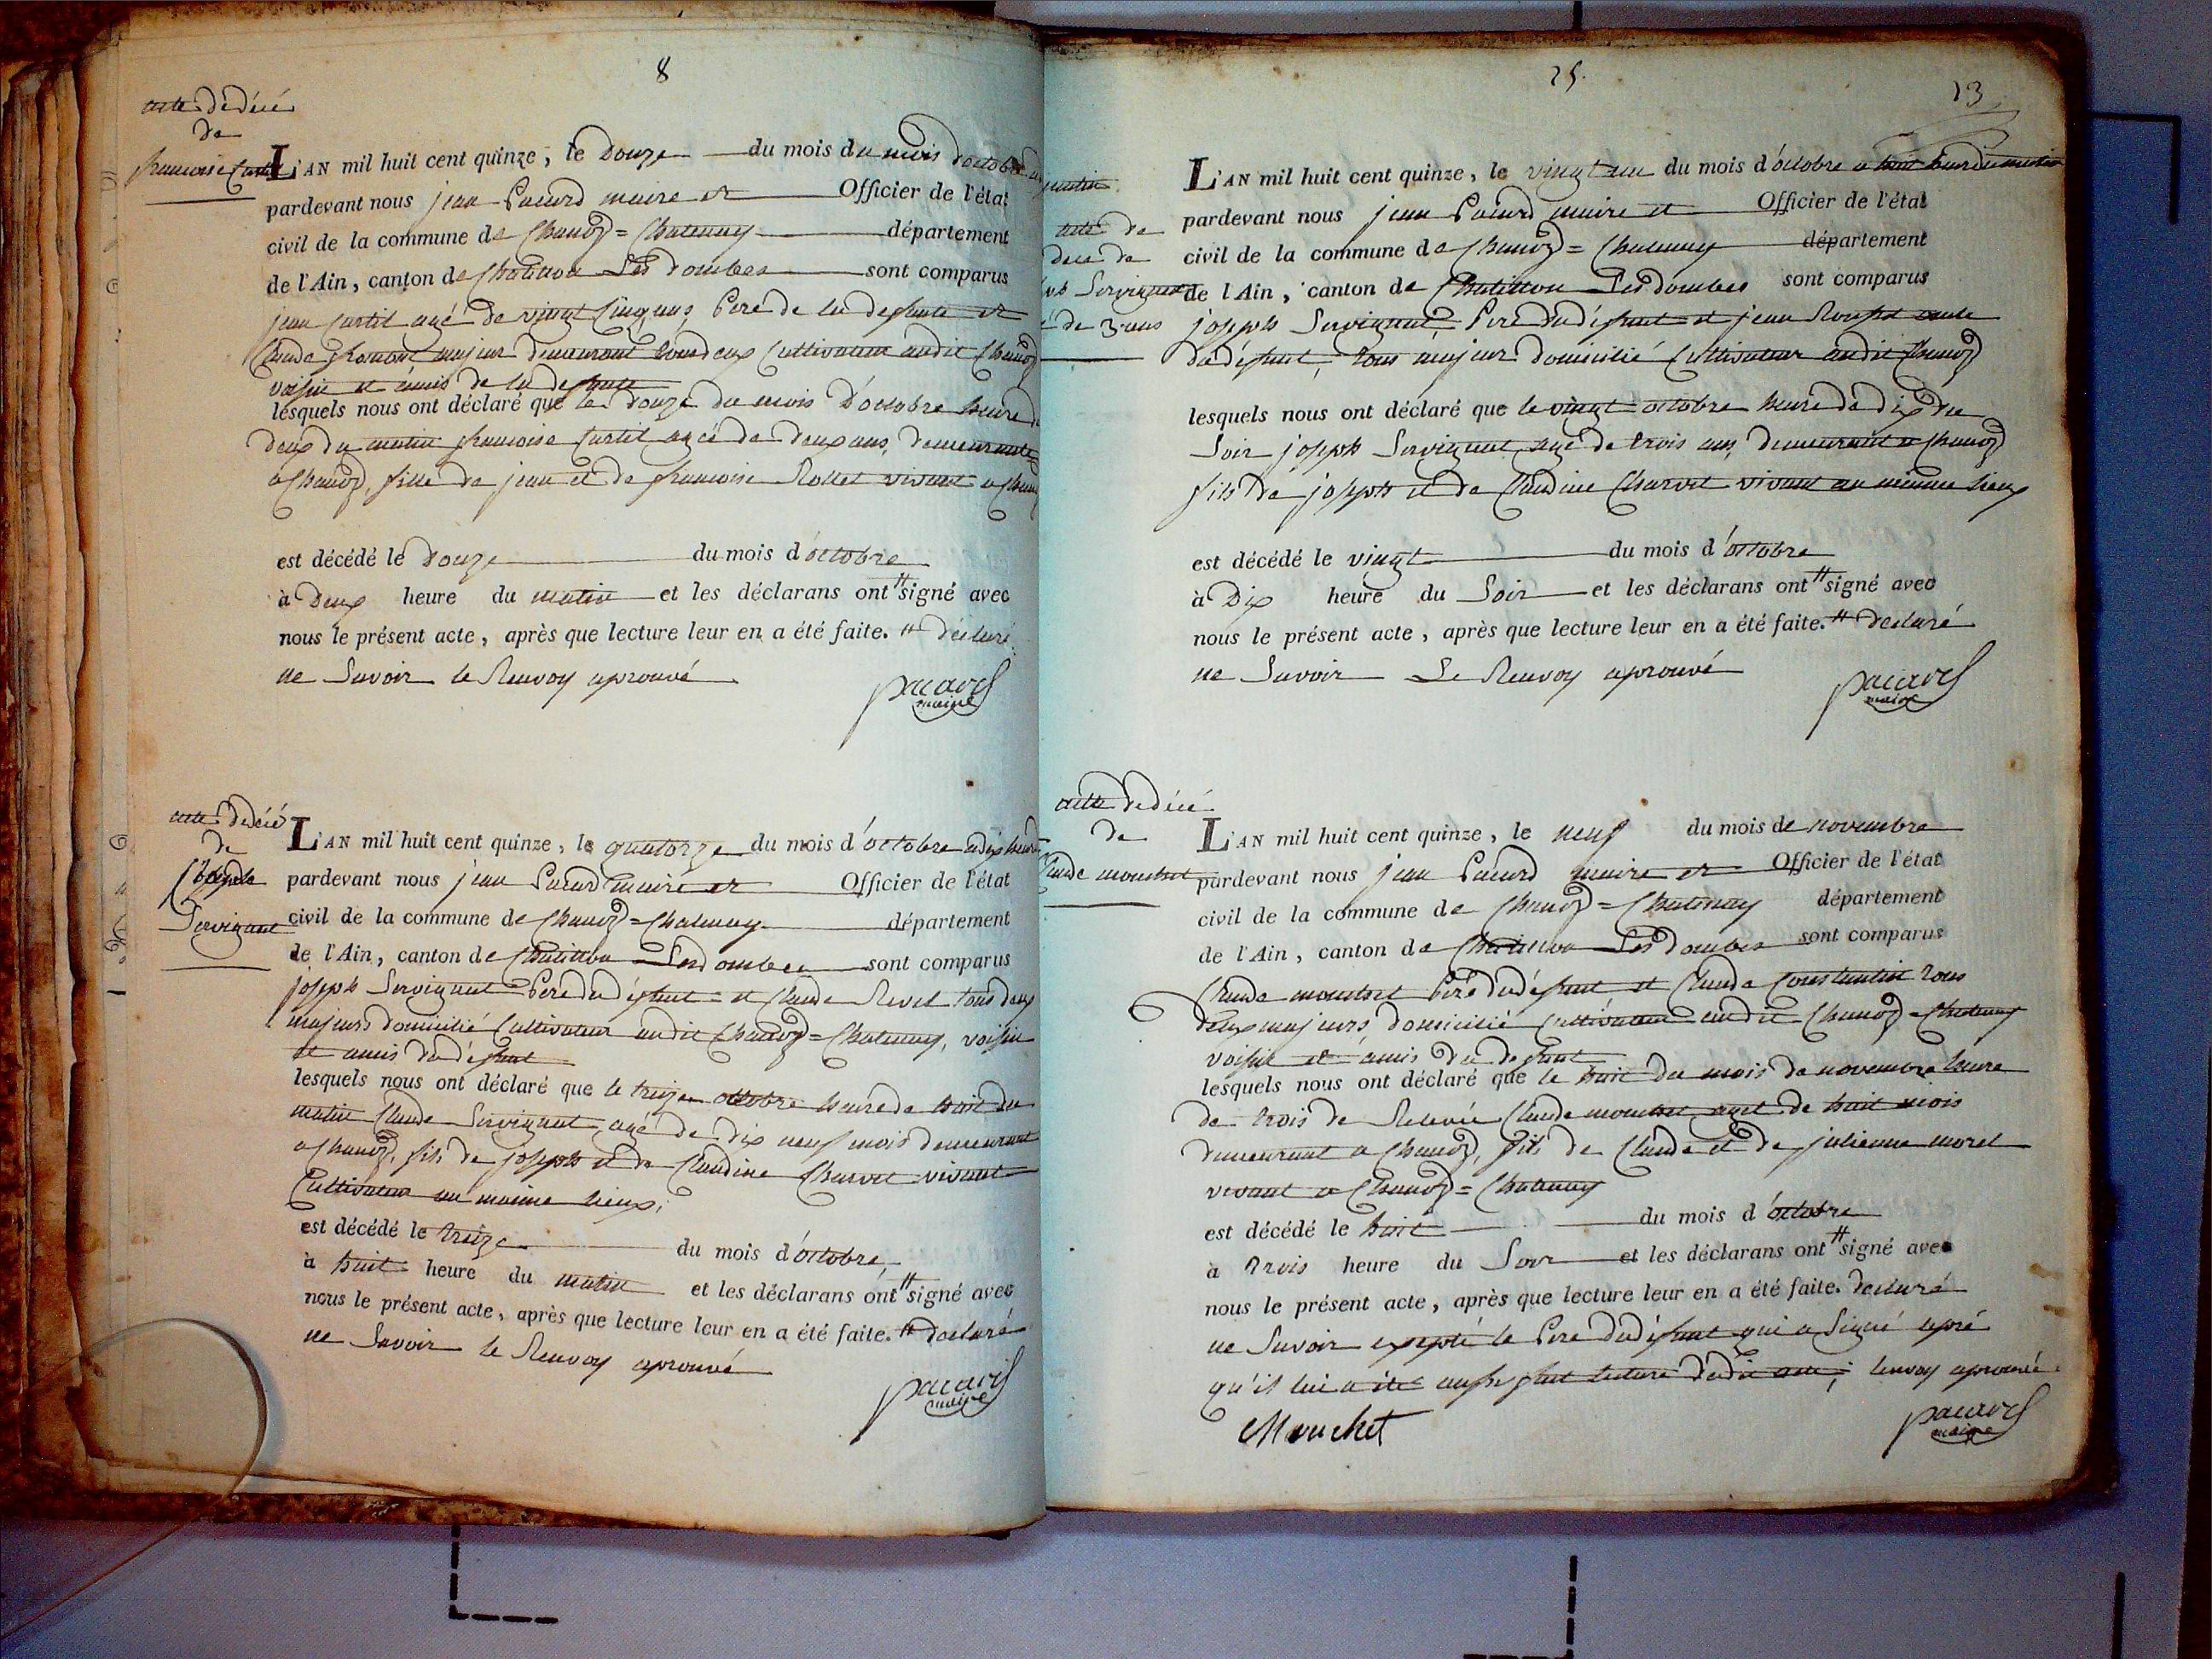 8
acte de décé
de
francoise Curtil
L'AN mil huit cent quinze, le Douze du mois du mois d'octobre
pardevant nous jean Pacard maire et Officier de l'état
civil de la commune de Chanoz=Chatenay département
de l'Ain, canton de Chatillon Les dombes sont comparus
jean Curtil agé de vingt cinq ans, Pere de la defunte et
Claude majeur demeurant tous deux Cultivateur audit Chanoz
voisin et amis de la defunte
lesquels nous ont déclaré que le douze du mois d'octobre heure de
deux du matin francoise Curtil agée de deux ans, demeurante
a Chanoz, fille de jean et de francoise Rollet vivant a
est décédé le Douze du mois d'octobre
à Deux heure du matin et les déclarans ont # signé avec
nous le présent acte, après que lecture leur en a été faite. # déclaré
ne Savoir le Renvoy aprouvé
pacard
maire
acte de décé
de
Claude
Servignat
L'AN mil huit cent quinze, le quatorze du mois d'octobre a dix heure
pardevant nous jean Pacard maire et Officier de l'état
civil de la commune de Chanoz=Chatenay département
de l'Ain, canton de Chatillon Les dombes sont comparus
joseph Servignat Pere du défunt et Claude Revel tous deux
majeurs domicilié Cultivateur audit Chanoz=Chatenay, voisin
et amis du défunt
lesquels nous ont déclaré que le treize octobre heure de huit du
matin Claude Servignat, agé de dix neuf mois demeurant
a Chanoz, fils de joseph et de Claudine Charvet vivant
Cultivateur au meime lieux;
est décédé le treize du mois d'octobre,
à huit heure du matin et les déclarans ont # signé avec
nous le présent acte, après que lecture leur en a été faite. # declaré
ne Savoir le Renvoy aprouvé
pacard
maire
25.
13
matin
acte de
dece de
Servignat
de 3 ans
L'AN mil huit cent quinze, le vingt un du mois d'octobre a huit heur du matin
pardevant nous jean Pacard maire et Officier de l'état
civil de la commune de Chanoz=Chatenay département
de l'Ain, canton de Chatillon Les dombes sont comparus
joseph Servignat Pere du défunt et jean oncle
du défunt, tous majeur domicilié Cultivateur audit Chanoz
lesquels nous ont déclaré que le vingt octobre heure de dix du
Soir joseph Servignat agé de trois ans, demeurant a Chanoz
fils de joseph et de Claudine Charvet vivant au meime lieux
est décédé le vingt du mois d'octobre
à Dix heure du Soir et les déclarans ont # signé avec
nous le présent acte, après que lecture leur en a été faite. # declaré
ne Savoir Le Renvoy aprouvé
pacard
maire
acte de décé
de
Claude mouchet
L'AN mil huit cent quinze, le neuf du mois de novembre
pardevant nous jean Pacard maire et Officier de l'état
civil de la commune de Chanoz=Chatenay département
de l'Ain, canton de Chatillon Les dombes sont comparus
Claude mouchet Pere du défunt et Claude Constantin tous
deux majeurs domicilié Cultivateur audit Chanoz=Chatenay
voisin et amis du defunt
lesquels nous ont déclaré que le huit du mois de novembre heure
de trois de Relevée Claude mouchet, aget de huit mois
demeurant a Chanoz, fils de Claude et de julienne morel
vivant a Chanoz=Chatenay
est décédé le huit du mois d'octobre
à trois heure du Soir et les déclarans ont # signé avec
nous le présent acte, après que lecture leur en a été faite. declaré
ne Savoir excepté le Pere du défunt qui a Signé apré
qu'il lui a été aussi fait lecture dudit acte; renvoy aprouvé
Mouchet
pacard
maire